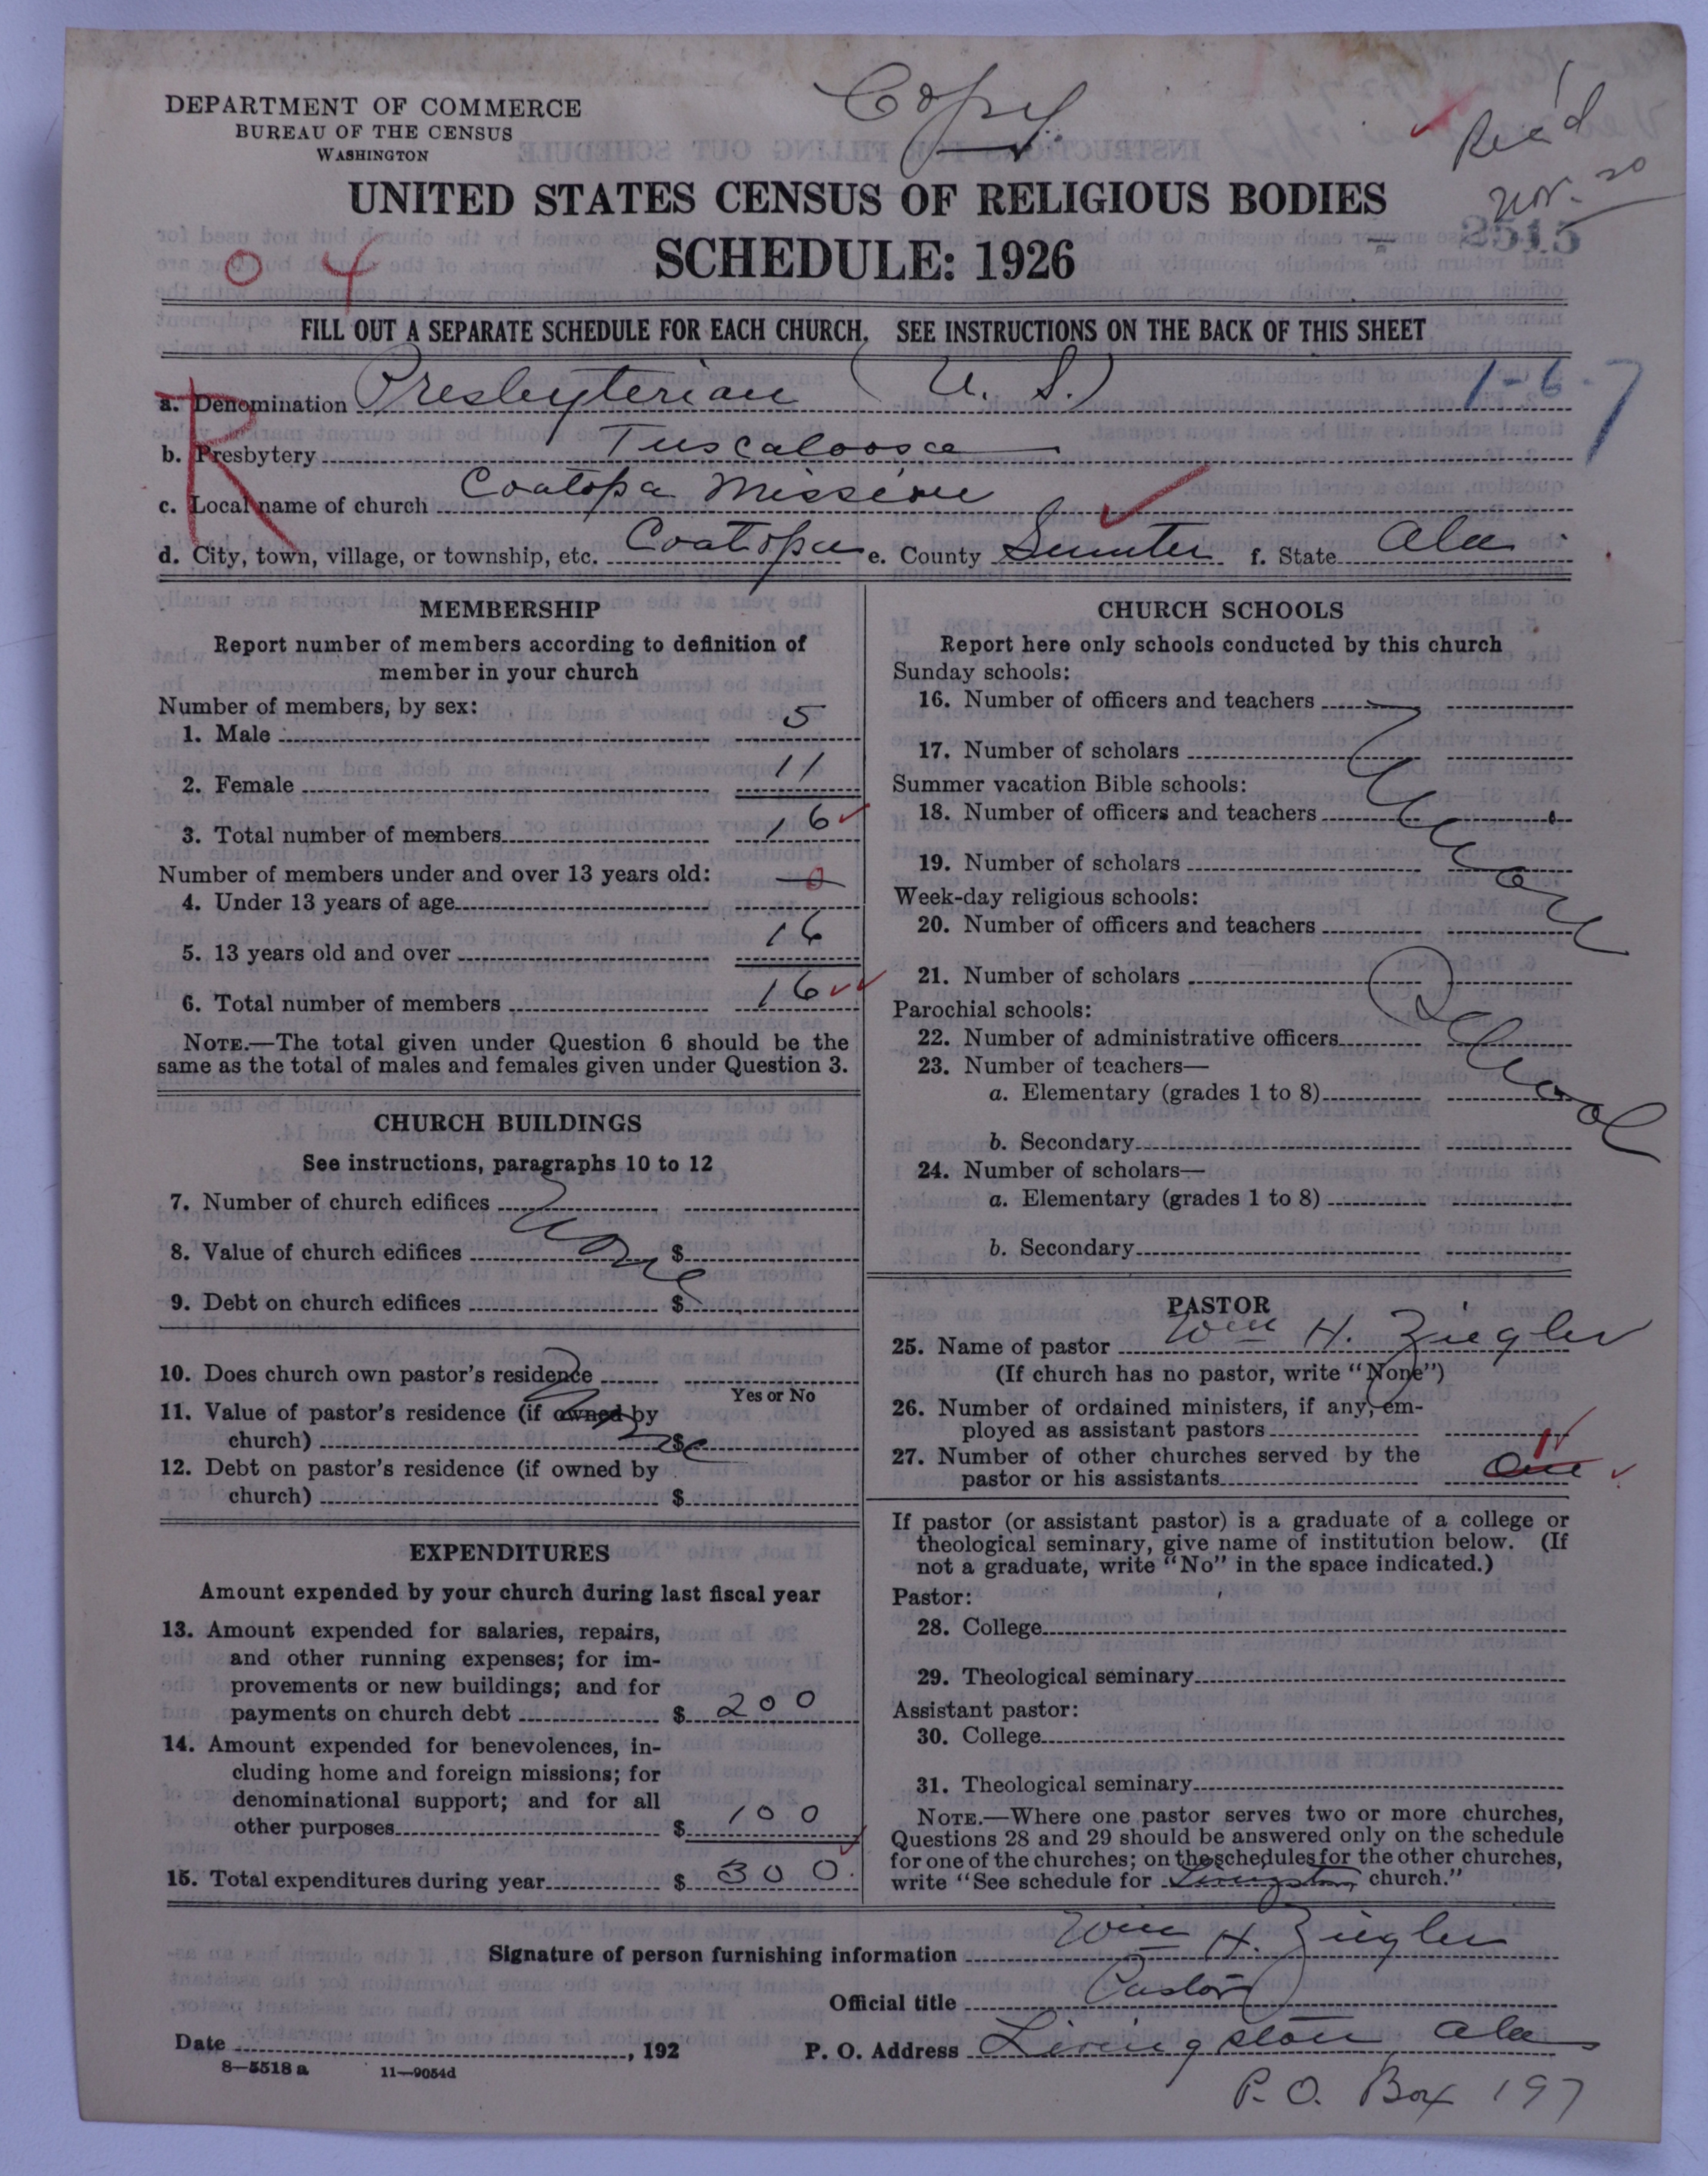 Copy
Rec'd
Nov. 20
2515
DEPARTMENT OF COMMERCE
BUREAU OF THE CENSUS
WASHINGTON
UNITED STATES CENSUS OF RELIGIOUS BODIES
SCHEDULE: 1926
0 4
FILL OUT A SEPARATE SCHEDULE FOR EACH CHURCH. SEE INSTRUCTIONS ON THE BACK OF THIS SHEET
R
1-6-7
a. Denomination Presbyterian (U. S.)
b. Presbytery Tuscaloosa
c. Local name of church Coatopa Mission
d. City, town, village, or township, etc. Coatopa e. County Sumter f. State Ala.
MEMBERSHIP
Report number of members according to definition of
member in your church
Number of members, by sex:
1. Male 5
2. Female 11
3. Total number of members 16
Number of members under and over 13 years old:
4. Under 13 years of age 0
5. 13 years old and over 16
6. Total number of members 16
NOTE.—The total given under Question 6 should be the
same as the total of males and females given under Question 3.
CHURCH BUILDINGS
See instructions, paragraphs 10 to 12
7. Number of church edifices None
8. Value of church edifices $
9. Debt on church edifices $
10. Does church own pastor's residence
Yes or No
11. Value of pastor's residence (if owned by
church) $
12. Debt on pastor's residence (if owned by
church) $
EXPENDITURES
Amount expended by your church during last fiscal year
13. Amount expended for salaries, repairs,
and other running expenses; for im-
provements or new buildings; and for
payments on church debt $ 200
14. Amount expended for benevolences, in-
cluding home and foreign missions; for
denominational support; and for all
other purposes $ 100
15. Total expenditures during year $ 300.
CHURCH SCHOOLS
Report here only schools conducted by this church
Sunday schools:
16. Number of officers and teachers
17. Number of scholars
Summer vacation Bible schools:
18. Number of officers and teachers
19. Number of scholars
Week-day religious schools:
20. Number of officers and teachers
21. Number of scholars
Parochial schools:
22. Number of administrative officers
23. Number of teachers—
a. Elementary (grades 1 to 8)
b. Secondary
24. Number of scholars—
a. Elementary (grades 1 to 8)
b. Secondary
PASTOR
25. Name of pastor Wm H. Ziegler
(If church has no pastor, write "None")
26. Number of ordained ministers, if any, em-
ployed as assistant pastors
27. Number of other churches served by the
pastor or his assistants One 1
If pastor (or assistant pastor) is a graduate of a college or
theological seminary, give name of institution below. (If
not a graduate, write "No" in the space indicated.)
Pastor:
28. College
29. Theological seminary
Assistant pastor:
30. College
31. Theological seminary
NOTE.—Where one pastor serves two or more churches,
Questions 28 and 29 should be answered only on the schedule
for one of the churches; on the schedules for the other churches,
write "See schedule for Livingston church."
Signature of person furnishing information Wm H. Ziegler
Official title Pastor
Date , 192
P. O. Address Livingston Ala
P.O. Box 197
8—5518 a 11—9054d